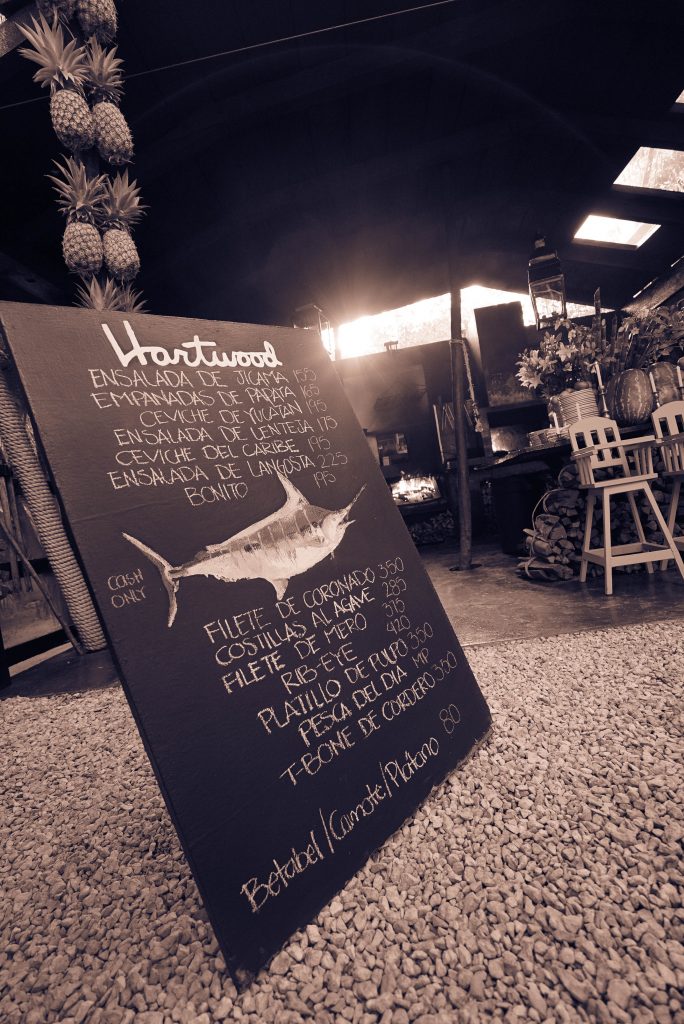 Hartwood
ENSALADA DE JICAMA 155
EMPANADAS DE PAPATA 165
CEVICHE DE YUCATAN 175
ENSALADA DE LENTEJA 175
CEVICHE DEL CARIBE 195
ENSALADA DE LANGOSTA 225
BONITO 195
CASH
ONLY
FILETE DE CORONADO 350
COSTILLAS AL AGAVE 285
FILETE DE MERO 375
RIB-EYE 420
PLATILLO DE PULPO 350
PESCA DEL DIA MP
T-BONE DE CORDERO 350
Betabel/Camote/Platano 80